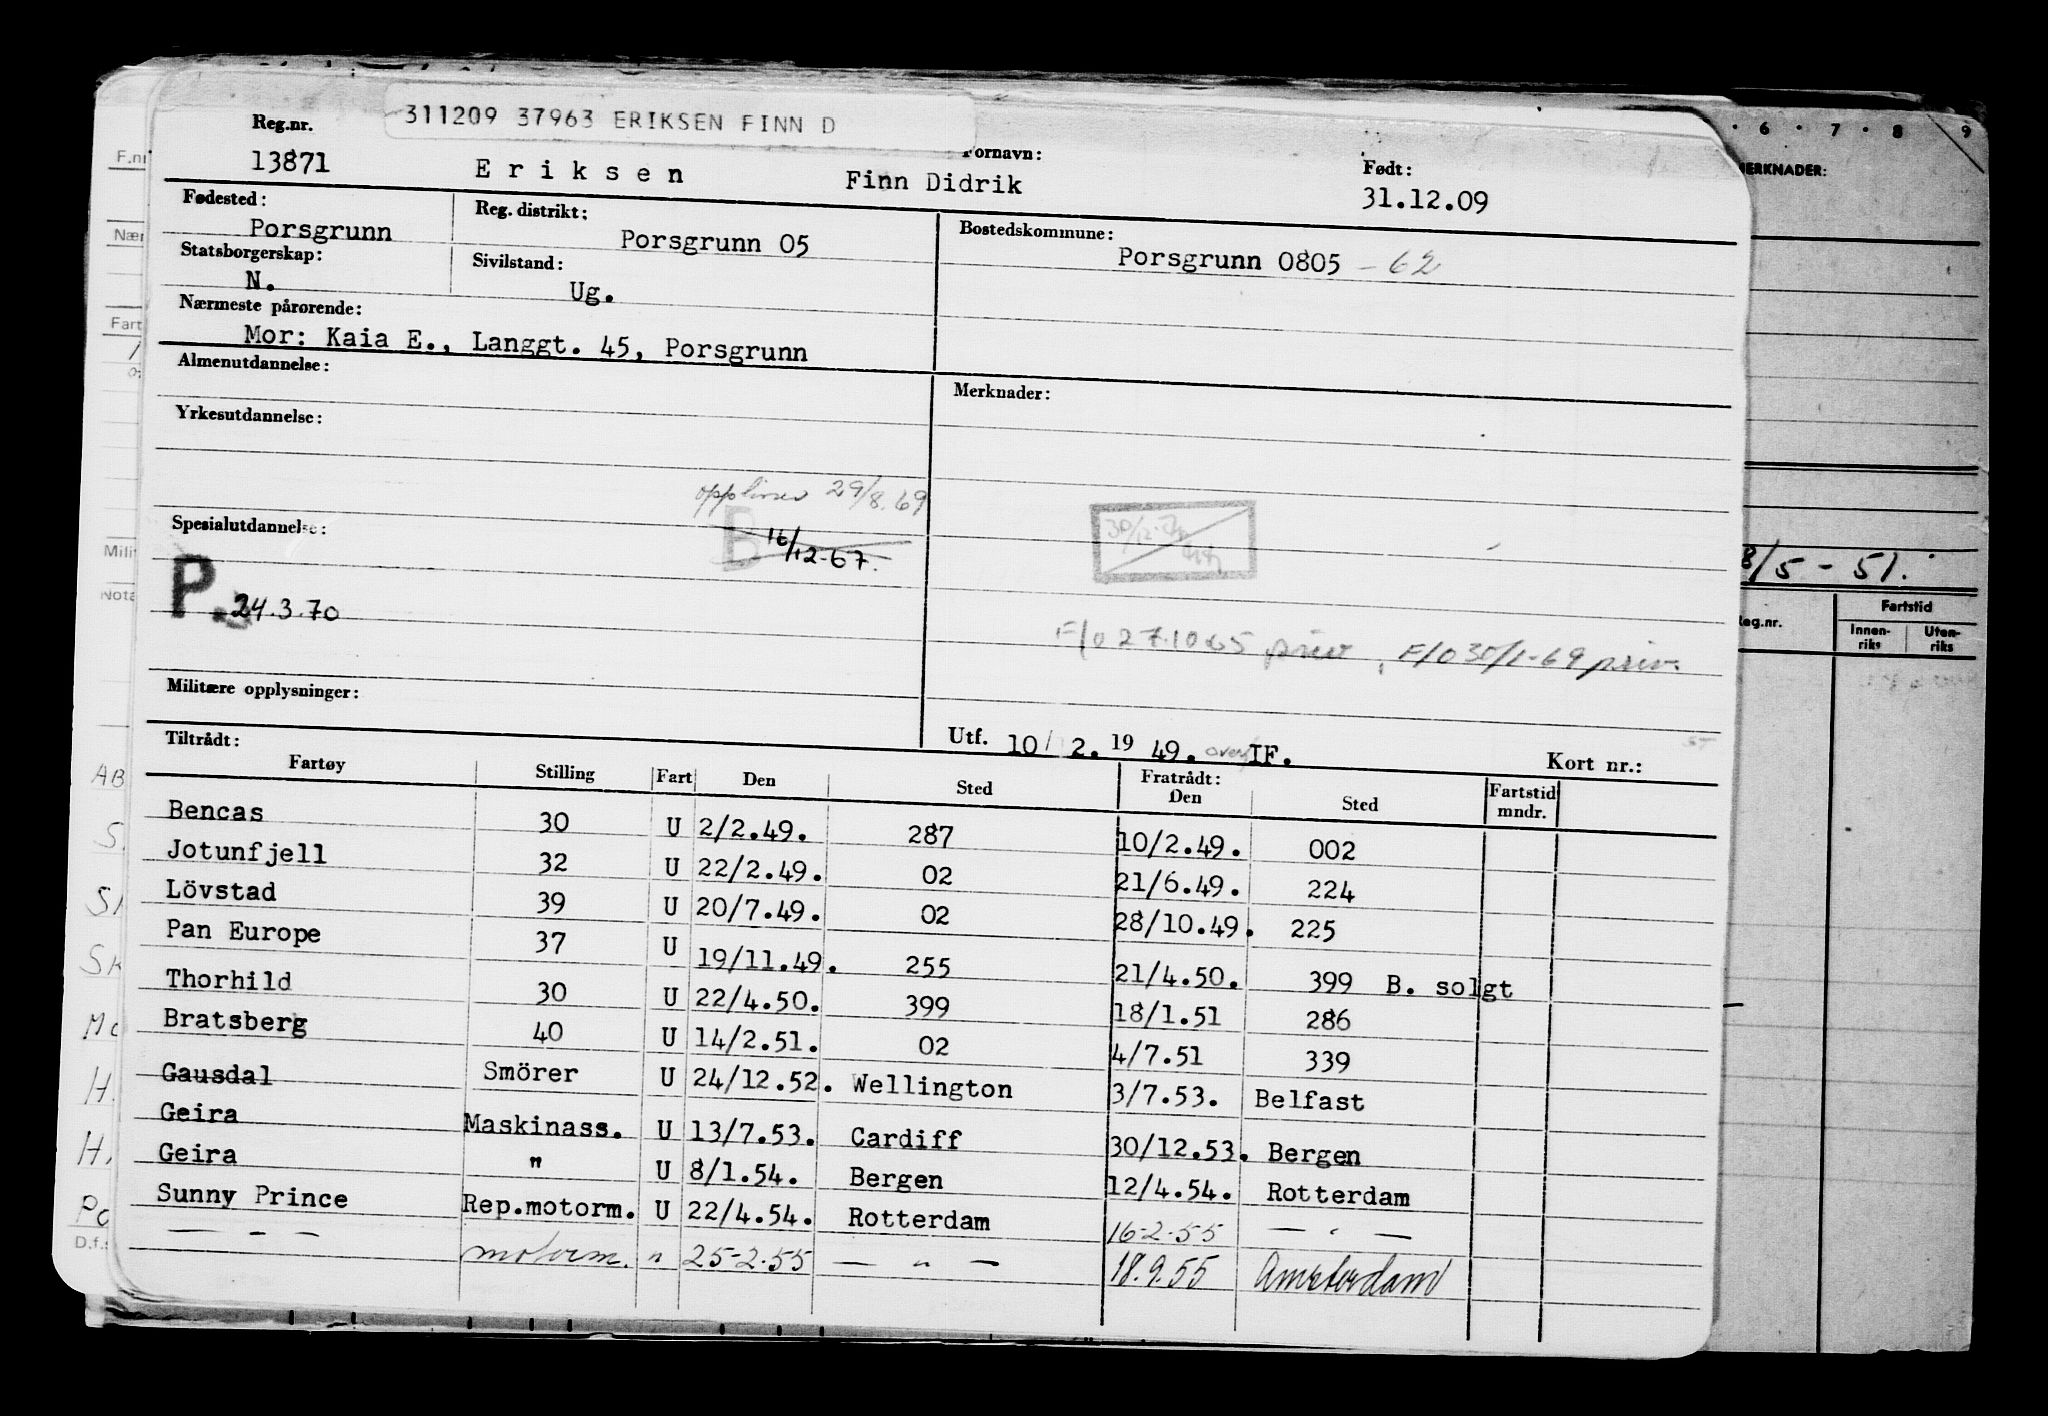 311209 37963 ERIKSEN FINN D
Reg.nr. Fornavn: Født:
13871 Eriksen Finn Didrik 31.12.09
Fødested: Reg. distrikt: Bostedskommune:
Porsgrunn Porsgrunn 05 Porsgrunn 0805 - 62
Statsborgerskap: Sivilstand:
N. Ug.
Nærmeste pårørende:
Mor: Kaia E., Langgt. 45, Porsgrunn
Almenutdannelse: Merknader:
Yrkesutdannelse:
29/8.69
Spesialutdannelse: B 16/12-67.
P. 24.3.70
F/o 27.10.65 priv, F/o 30/1-69 priv.
Militære opplysninger:
Utf. 10/2. 19 49. IF. Kort nr.:
Tiltrådt: Fratrådt:
Fartøy Stilling Fart Den Sted Den Sted Fartstid mndr.
Bencas 30 U 2/2.49. 287 10/2.49. 002
Jotunfjell 32 U 22/2.49. 02 21/6.49. 224
Lövstad 39 U 20/7.49. 02 28/10.49. 225
Pan Europe 37 U 19/11.49. 255 21/4.50. 399 B. solgt
Thorhild 30 U 22/4.50. 399 18/1.51 286
Bratsberg 40 U 14/2.51. 02 4/7.51 339
Gausdal Smörer U 24/12.52. Wellington 3/7.53. Belfast
Geira Maskinass. U 13/7.53. Cardiff 30/12.53. Bergen
Geira " U 8/1.54. Bergen 12/4.54. Rotterdam
Sunny Prince Rep.motorm. U 22/4.54. Rotterdam 16-2-55 — " —
— - — motorm. " 25-2.55 — " — 18.9.55 Amsterdam
6 7 8 9
MERKNADER:
8/5 - 51.
Reg.nr. Fartstid
Innen-riks Uten-riks
F.nr
Nær
Fart
Milit
Nota
AB
S
Sk
Mo
H
H
Po
D.f.s